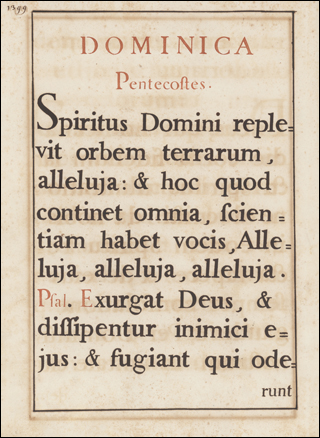 1399
DOMINICA
Pentecoſtes.
Spiritus Domini reple=
vit orbem terrarum,
alleluja: & hoc quod
continet omnia, ſcien=
tiam habet vocis, Alle=
luja, alleluja, alleluja.
Pſal. Exurgat Deus, &
diſſipentur inimici e=
jus: & fugiant qui ode=
runt